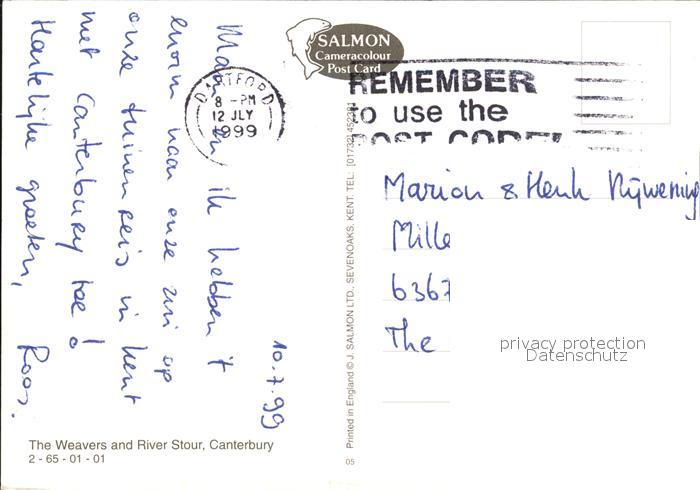 10.7.99
Maar en ik hebben 't
enorm naar onze zin op
onze tuinenreis in Kent
met Canterbury toe!
Hartelijke groeten, Roos.
SALMON
Cameracolour
Post Card
DARTFORD
8 - PM
12 JLY
1999
REMEMBER
to use the
POST CODE!
Marion & Henk
Mille
6367
The
privacy protection
Datenschutz
Printed in England © J. SALMON LTD., SEVENOAKS, KENT. TEL: (01732) 452381
The Weavers and River Stour, Canterbury
2 - 65 - 01 - 01
05